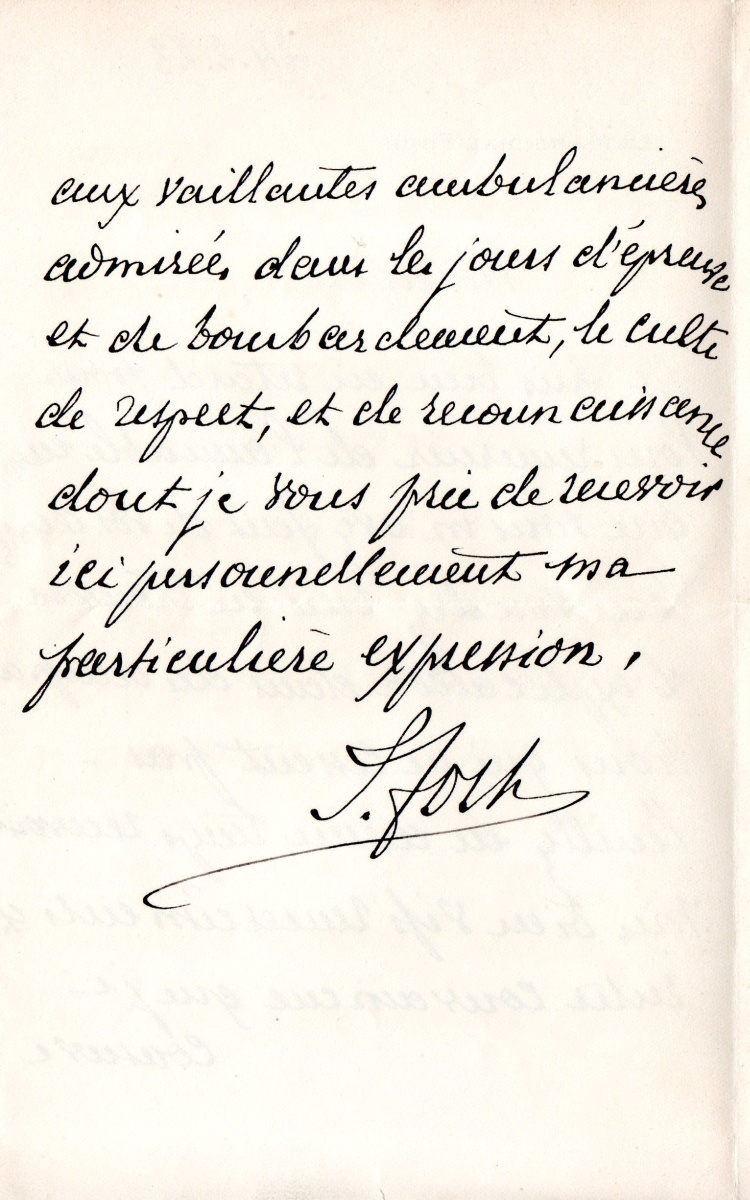 aux vaillantes ambulancières
admirées dans les jours d'épreuve
et de bombardement, le culte
de respect, et de reconnaissance
dont je vous prie de recevoir
ici personnellement ma
particulière expression.
F. Foch